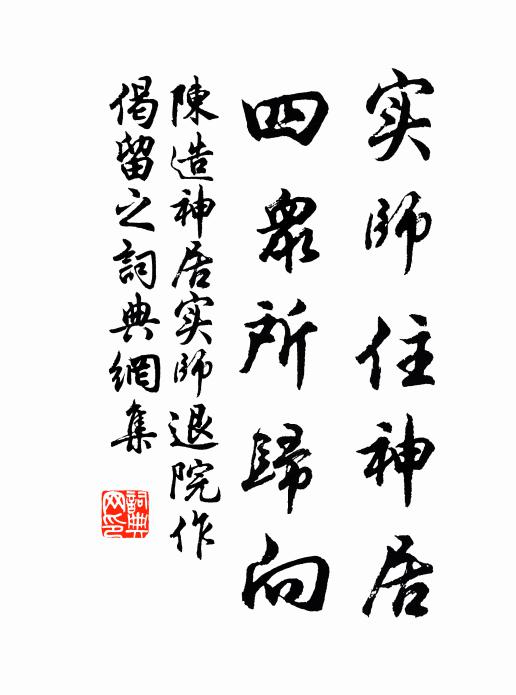 实師住神居
四衆所歸向
陳造神居实師退院作
偈留之詞典網集
詞典網印